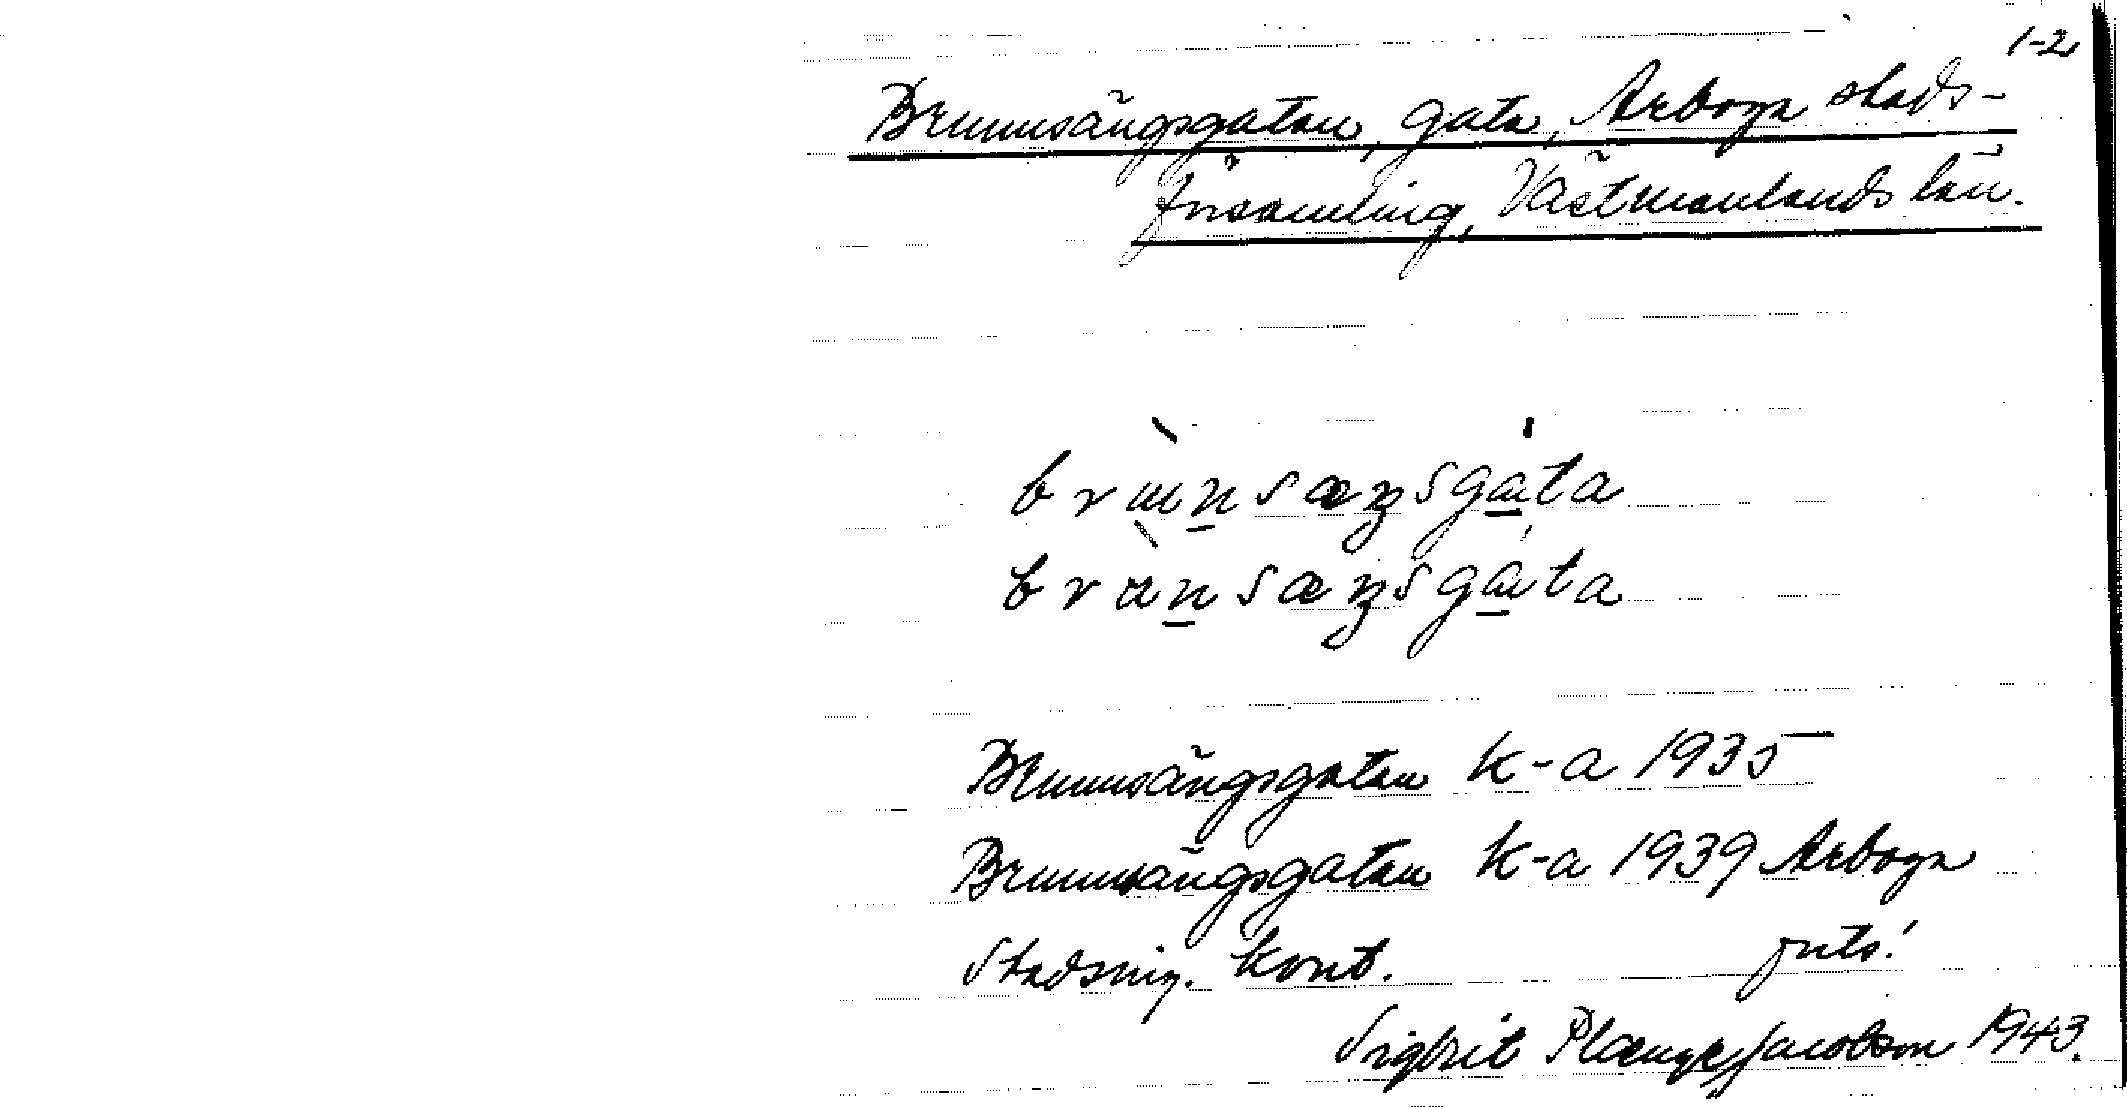 1-2
Brunnsängsgatan, gata, Arboga stads-
församling, Västmanlands län.
brùnsæŋsgáta
brànsæŋsgáta
Brunnsängsgatan K-a 1935
Brunnsängsgatan K-a 1939 Arboga
Stadsing. kont. forts!
Sigbrit Plænge Jacobson 1943.